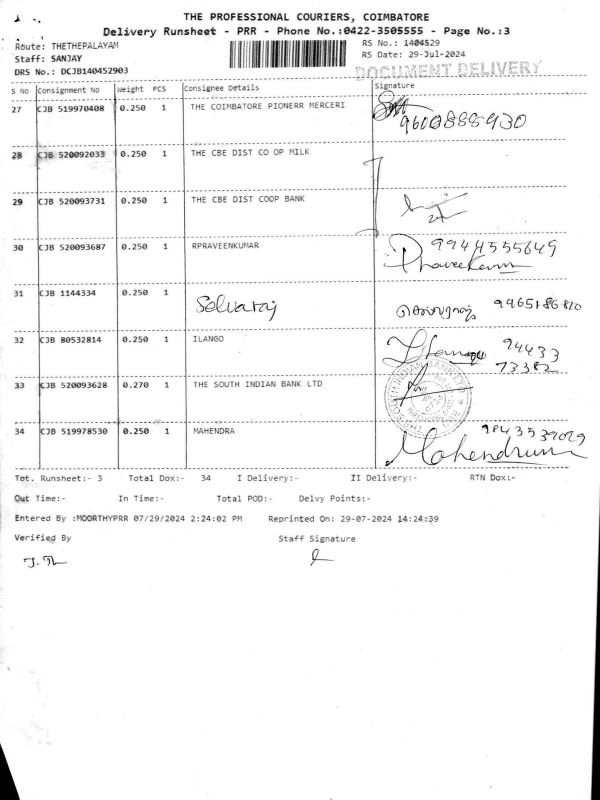 THE PROFESSIONAL COURIERS, COIMBATORE
Delivery Runsheet - PRR - Phone No.:0422-3505555 - Page No.:3
Route: THETHEPALAYAM
RS No.: 1404529
Staff: SANJAY
RS Date: 29-Jul-2024
DRS No.: DCJB140452903
DOCUMENT DELIVERY
S No Consignment No Weight PCS Consignee Details Signature
27 CJB 519970408 0.250 1 THE COIMBATORE PIONERR MERCERI
9600888930
28 CJB 520092033 0.250 1 THE CBE DIST CO OP MILK
29 CJB 520093731 0.250 1 THE CBE DIST COOP BANK
30 CJB 520093687 0.250 1 RPRAVEENKUMAR 9944555649
Praveekumar
31 CJB 1144334 0.250 1 Selvaraj செல்வராஜ்
32 CJB 80532814 0.250 1 ILANGO 94433
73382
33 CJB 520093628 0.270 1 THE SOUTH INDIAN BANK LTD
34 CJB 519978530 0.250 1 MAHENDRA
Tot. Runsheet:- 3 Total Dox:- 34 I Delivery:- II Delivery:- RTN Dox:-
Out Time:- In Time:- Total POD:- Delvy Points:-
Entered By :MOORTHYPRR 07/29/2024 2:24:02 PM Reprinted On: 29-07-2024 14:24:39
Verified By Staff Signature